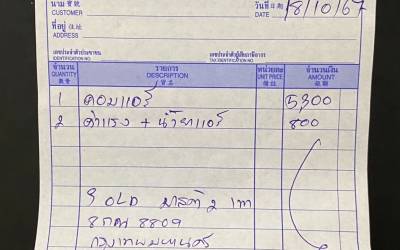 นาม 寶號
CUSTOMER
วันที่ 日期
DATE 8/10/67
ที่อยู่ 住址
ADDRESS
เลขประจำตัวประชาชน
IDENTIFICATION NO.
เลขประจำตัวผู้เสียภาษีอากร
TAX IDENTIFICATION NO.
จำนวน รายการ หน่วยละ จำนวนเงิน
QUANTITY DESCRIPTION UNIT PRICE AMOUNT
數量 貨名 價錢 銀額
1 คอมแอร์ 5,300
2 ค่าแรง + น้ำยาแอร์ 800
OLD 2
8กฌ 8809
กรุงเทพมหานคร